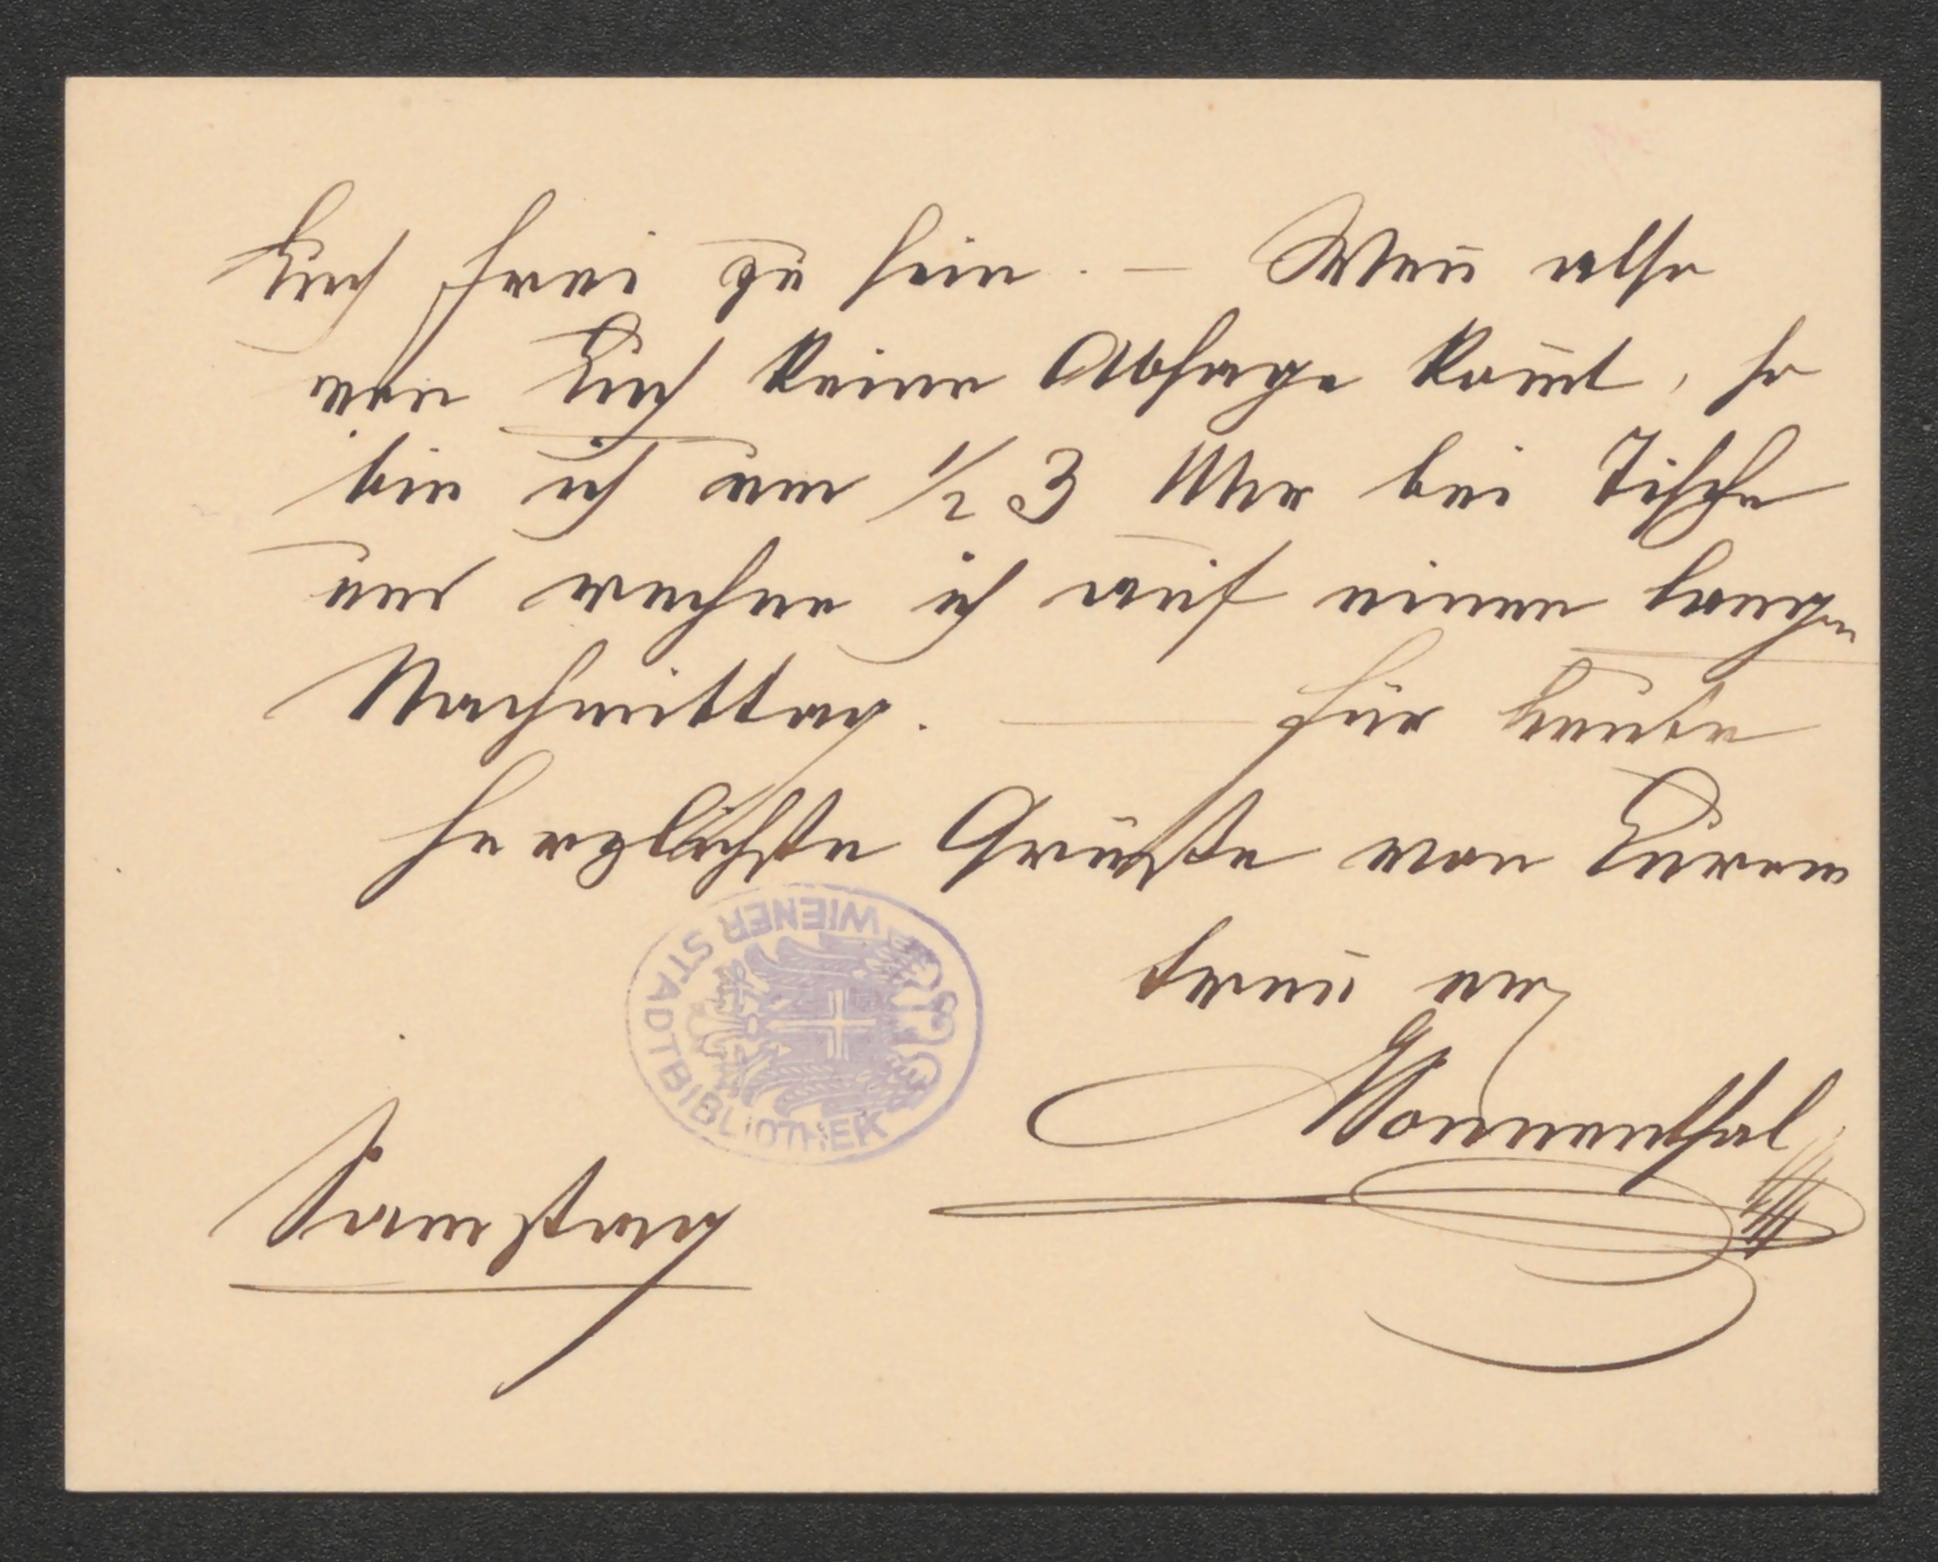 Euch frei zu sein. – Wen̄ also
von Euch keine Absage kom̄t, so
bin ich um ½ 3 Uhr bei Tische
und rechne ich auf einen langen
Nachmittag. — Für heute
herzlichste Grüße von Eurem
treu erg
Sonnenthal
WIENER STADTBIBLIOTHEK
Samstag